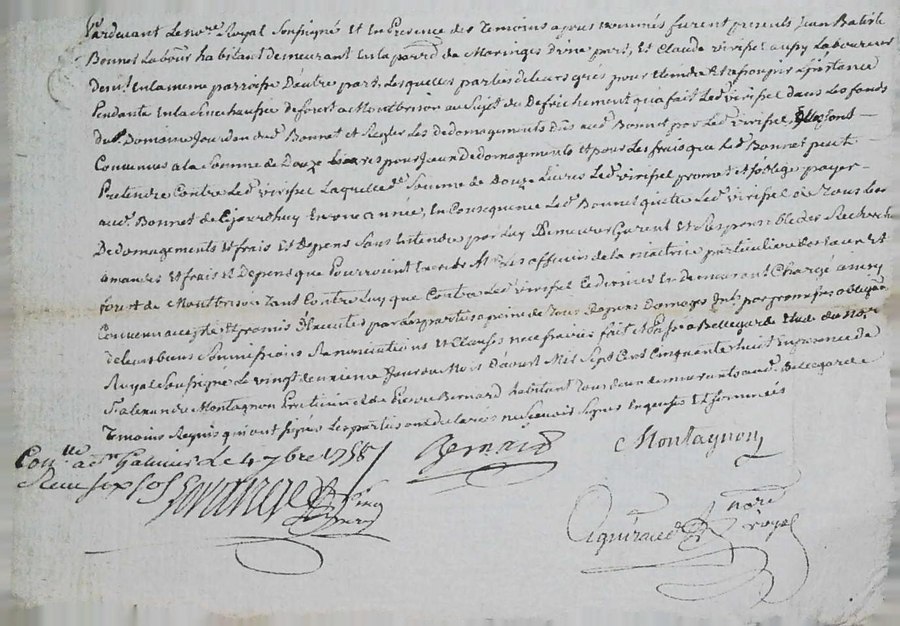 Pardevant Le no.re Royal Soussigné et en Presence des Temoins apres nommés furent presents Jean Batiste
Bonnet Labour habitant demeurant en la parr.e de Maringes Dune part, Et Claude virissel aussy Laboureur
dem.t en la meme parroisse Dautre part, Lesquelles parties de leurs grés pour eteindre et assoupir L'instance
Pendante en la Senechaussée de forest a Montbrison au Sujet du Defrichement qua fait Led. virissel dans Les fonds
du Domaine Jourdan dud. Bonnet et Regler Les dedomagements dus aud. Bonnet par Led. virissel, Ils sont
Convenus a la Somme de Douze Livres pour Iceux Dedomagements et pour Les frais que Led. Bonnet peut
Pretendre Contre Led. virissel Laquelle d. Somme de Douze Livres Led. virissel promet et s'oblige payer
aud. Bonnet de Cejourdhuy en une année, En Consequence Led. Bonnet quitte Led. virissel de Tous Les
Dedomagements et frais Et Depens Sans entendre par Luy Demeurer Garent et Responsable des Recherches
amandes et frais et Depens que Pourroint Les officiers de la maitrise particuliere des Eaux et
foret de Montbrison Tant Contre Luy que Contre Led. virissel Ce dernier En demeurant Chargé ainsy
Convenu accepté et promis Executer par Les parties a peine de Tous Depens Domages Int. par promesses obligaôn
de leurs biens Soumissions Renonciations et Clauses necessaires fait et Passé a Bellegarde Etude du No.re
Royal Soussigné Le vingt deuxieme Jour du Mois Daoust Mil Sept Cent Cinquante huit En presence de
S.r alexandre Montagnon Praticien et de Pierre Bernard habitant Tous deux demeurants aud. Bellegarde
Temoins Requis qui ont signé Les parties ont declarés ne Scavoir Signer Enquises Et Sommées
Bernard
Montagnon
Con.llé a S.t Galmier Le 4 7bre 1758
Reçu six sols
Aguiraud
no.re
royal